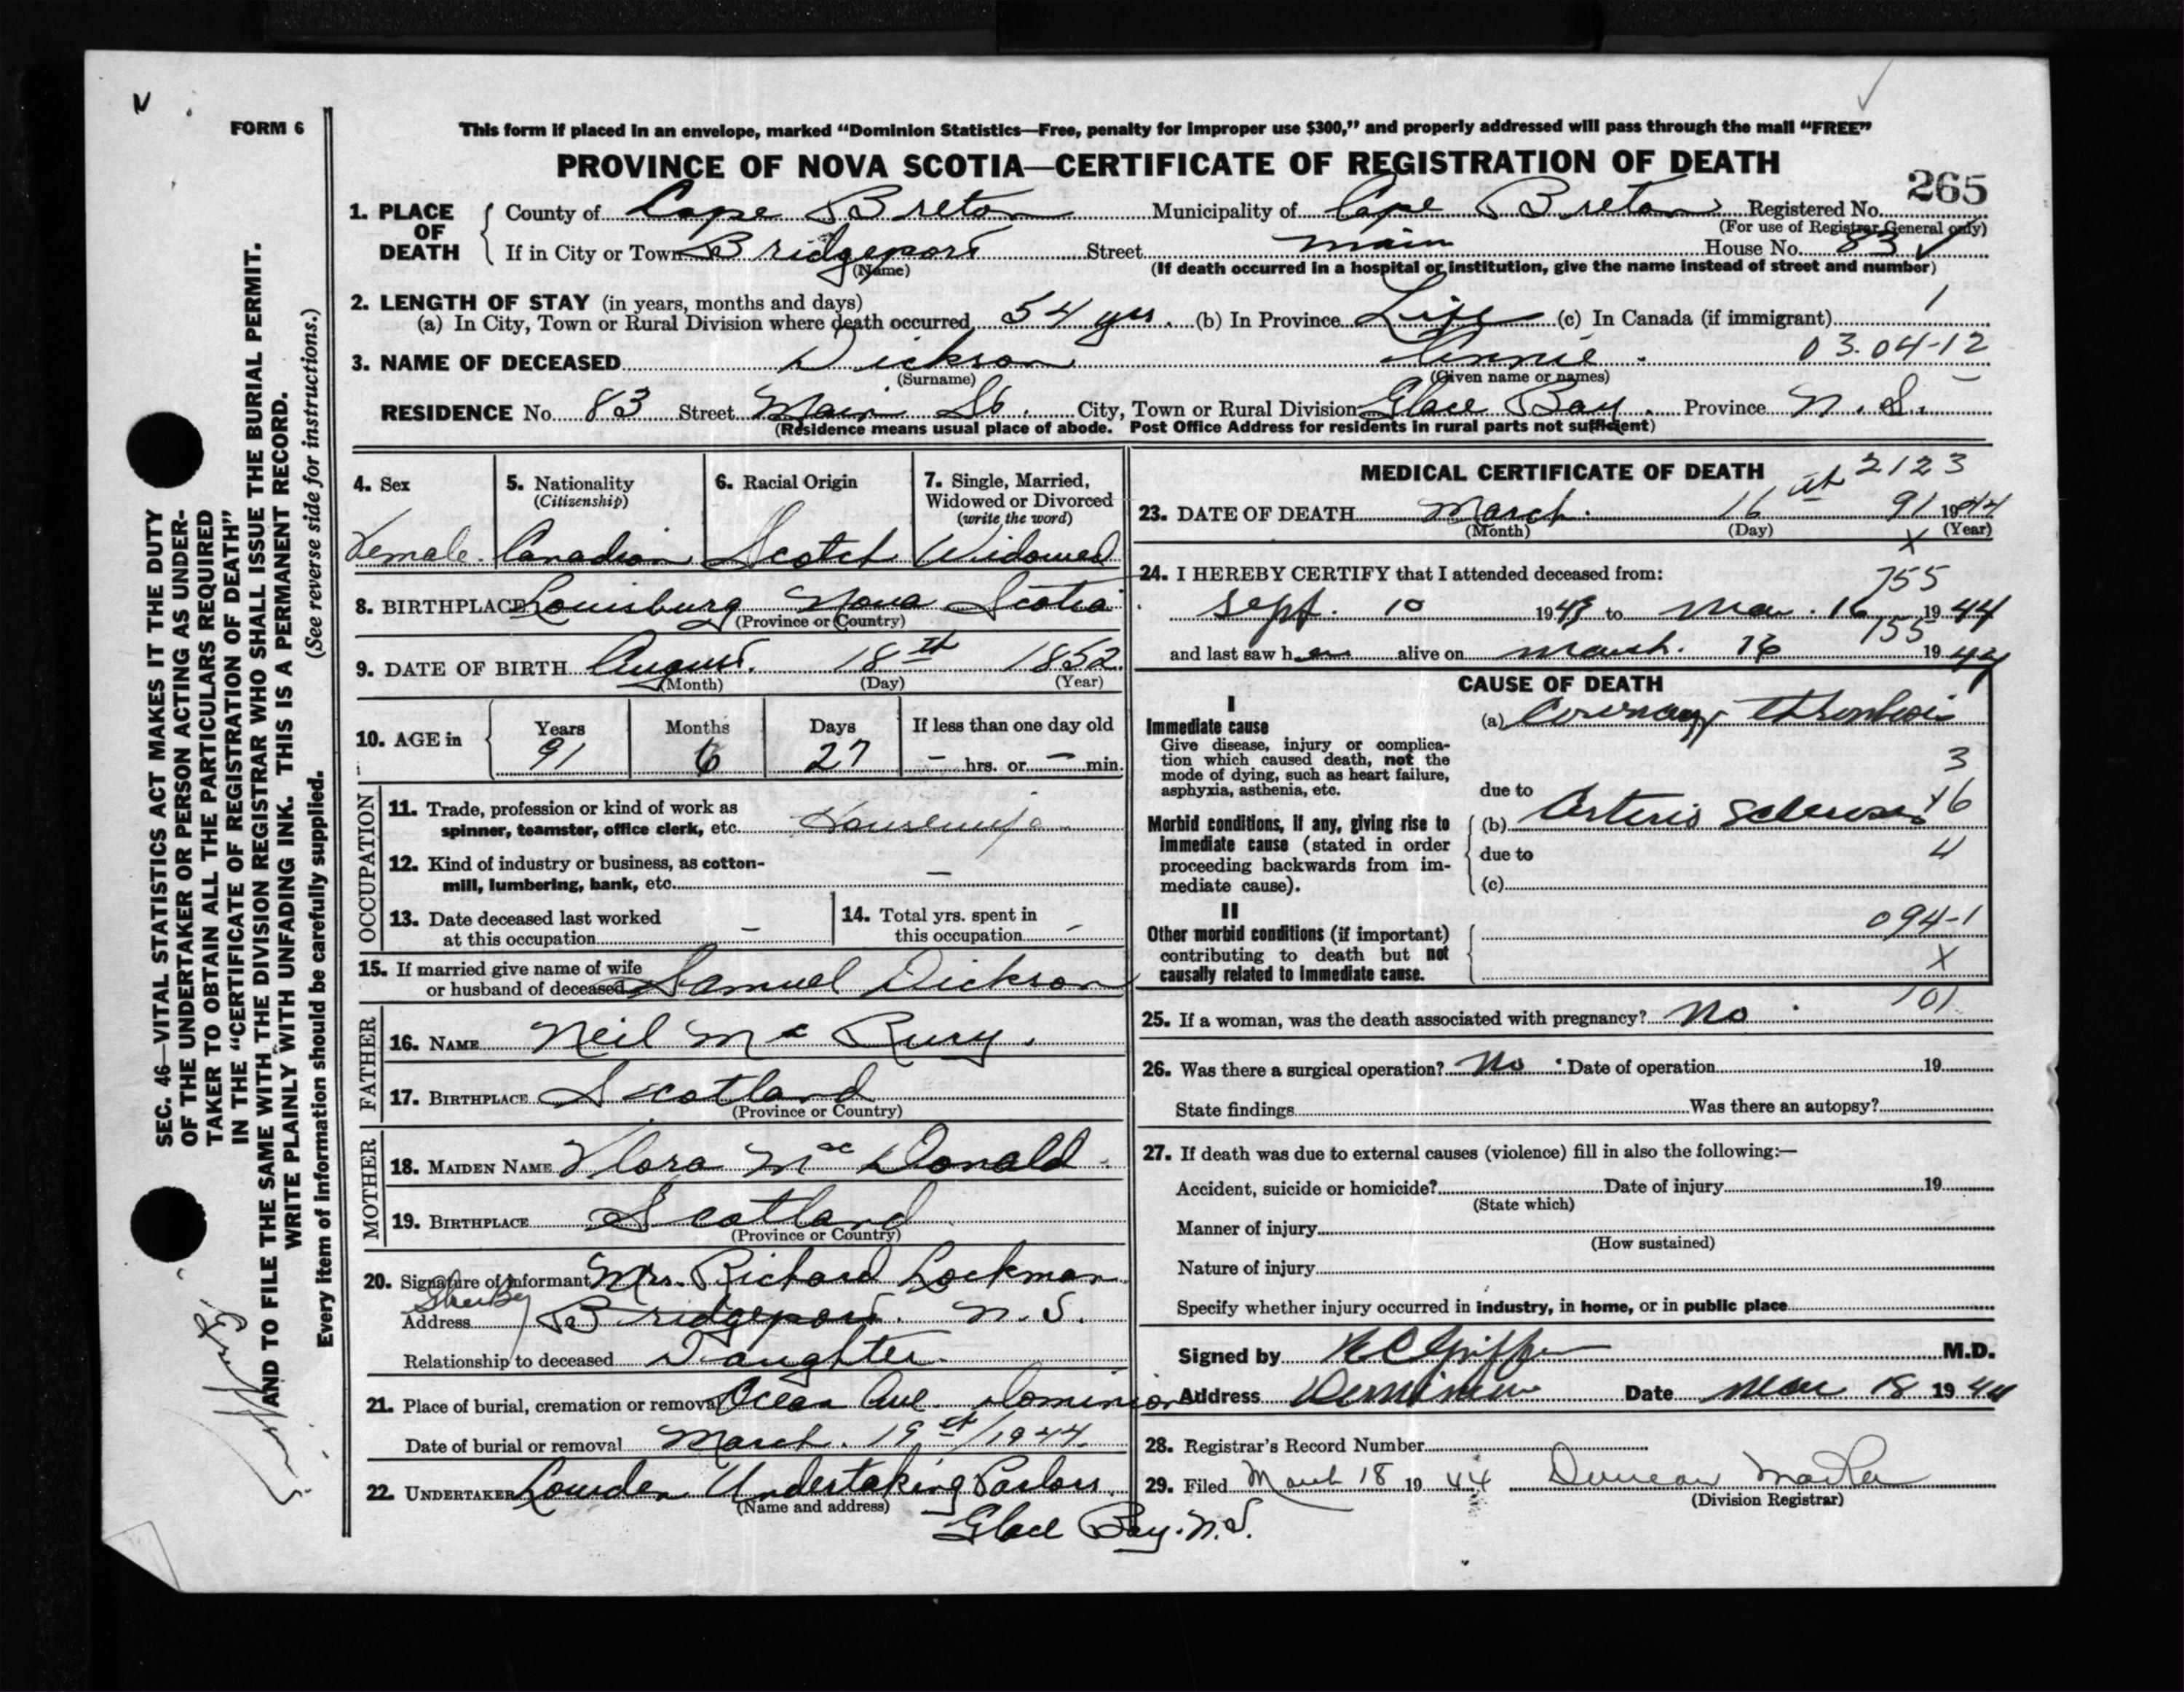 FORM 6
This form if placed in an envelope, marked “Dominion Statistics—Free, penalty for improper use $300,” and properly addressed will pass through the mail “FREE”
PROVINCE OF NOVA SCOTIA—CERTIFICATE OF REGISTRATION OF DEATH
265
1. PLACE OF DEATH
County of Cape Breton Municipality of Cape Breton Registered No.
(For use of Registrar General only)
If in City or Town Bridgeport Street Main House No. 83 ✓
(Name) (If death occurred in a hospital or institution, give the name instead of street and number)
2. LENGTH OF STAY (in years, months and days)
(a) In City, Town or Rural Division where death occurred 54 yrs. (b) In Province Life (c) In Canada (if immigrant) 1
3. NAME OF DECEASED Dickson Annie . 03.04-12
(Surname) (Given name or names)
RESIDENCE No. 83 Street Main St. City, Town or Rural Division Glace Bay. Province N.S.
(Residence means usual place of abode. Post Office Address for residents in rural parts not sufficient)
4. Sex 5. Nationality (Citizenship) 6. Racial Origin 7. Single, Married, Widowed or Divorced (write the word)
Female Canadian Scotch Widowed
8. BIRTHPLACE Louisburg Nova Scotia
(Province or Country)
9. DATE OF BIRTH August. 18th 1852
(Month) (Day) (Year)
10. AGE in Years Months Days If less than one day old
91 6 27 – hrs. or – min.
OCCUPATION
11. Trade, profession or kind of work as
spinner, teamster, office clerk, etc. Housewife
12. Kind of industry or business, as cotton-
mill, lumbering, bank, etc. –
13. Date deceased last worked
at this occupation –
14. Total yrs. spent in
this occupation –
15. If married give name of wife
or husband of deceased Samuel Dickson
FATHER
16. NAME Neil Mc Rury.
17. BIRTHPLACE Scotland
(Province or Country)
MOTHER
18. MAIDEN NAME Flora Mac Donald.
19. BIRTHPLACE Scotland
(Province or Country)
20. Signature of informant Mrs. Richard Lockman
Address Bridgeport. N.S.
Relationship to deceased Daughter.
21. Place of burial, cremation or removal Ocean Ave. Dominion
Date of burial or removal March. 19th/1944.
22. UNDERTAKER Lowden Undertaking Parlors.
(Name and address)
Glace Bay. N.S.
MEDICAL CERTIFICATE OF DEATH
2123
23. DATE OF DEATH March. 16th 91 1944
(Month) (Day) X (Year)
24. I HEREBY CERTIFY that I attended deceased from:
755
Sept. 10 1943 to Mar. 16 1944
155
and last saw her alive on March. 16 1944
CAUSE OF DEATH
I
Immediate cause
Give disease, injury or complica-
tion which caused death, not the
mode of dying, such as heart failure,
asphyxia, asthenia, etc.
(a) Coronary thrombosis
3
due to
Morbid conditions, if any, giving rise to
immediate cause (stated in order
proceeding backwards from im-
mediate cause).
(b) Arterio Sclerosis
due to 4
(c)
II
Other morbid conditions (if important)
contributing to death but not
causally related to immediate cause.
094-1
X
101
25. If a woman, was the death associated with pregnancy? No
26. Was there a surgical operation? No Date of operation 19
State findings Was there an autopsy?
27. If death was due to external causes (violence) fill in also the following:—
Accident, suicide or homicide? Date of injury 19
(State which)
Manner of injury
(How sustained)
Nature of injury
Specify whether injury occurred in industry, in home, or in public place
Signed by M.D.
Address Dominion Date Mar 18 1944
28. Registrar's Record Number
29. Filed March 18 1944 Duncan
(Division Registrar)
SEC. 46—VITAL STATISTICS ACT MAKES IT THE DUTY
OF THE UNDERTAKER OR PERSON ACTING AS UNDER-
TAKER TO OBTAIN ALL THE PARTICULARS REQUIRED
IN THE “CERTIFICATE OF REGISTRATION OF DEATH”
AND TO FILE THE SAME WITH THE DIVISION REGISTRAR WHO SHALL ISSUE THE BURIAL PERMIT.
WRITE PLAINLY WITH UNFADING INK. THIS IS A PERMANENT RECORD.
Every item of information should be carefully supplied. (See reverse side for instructions.)